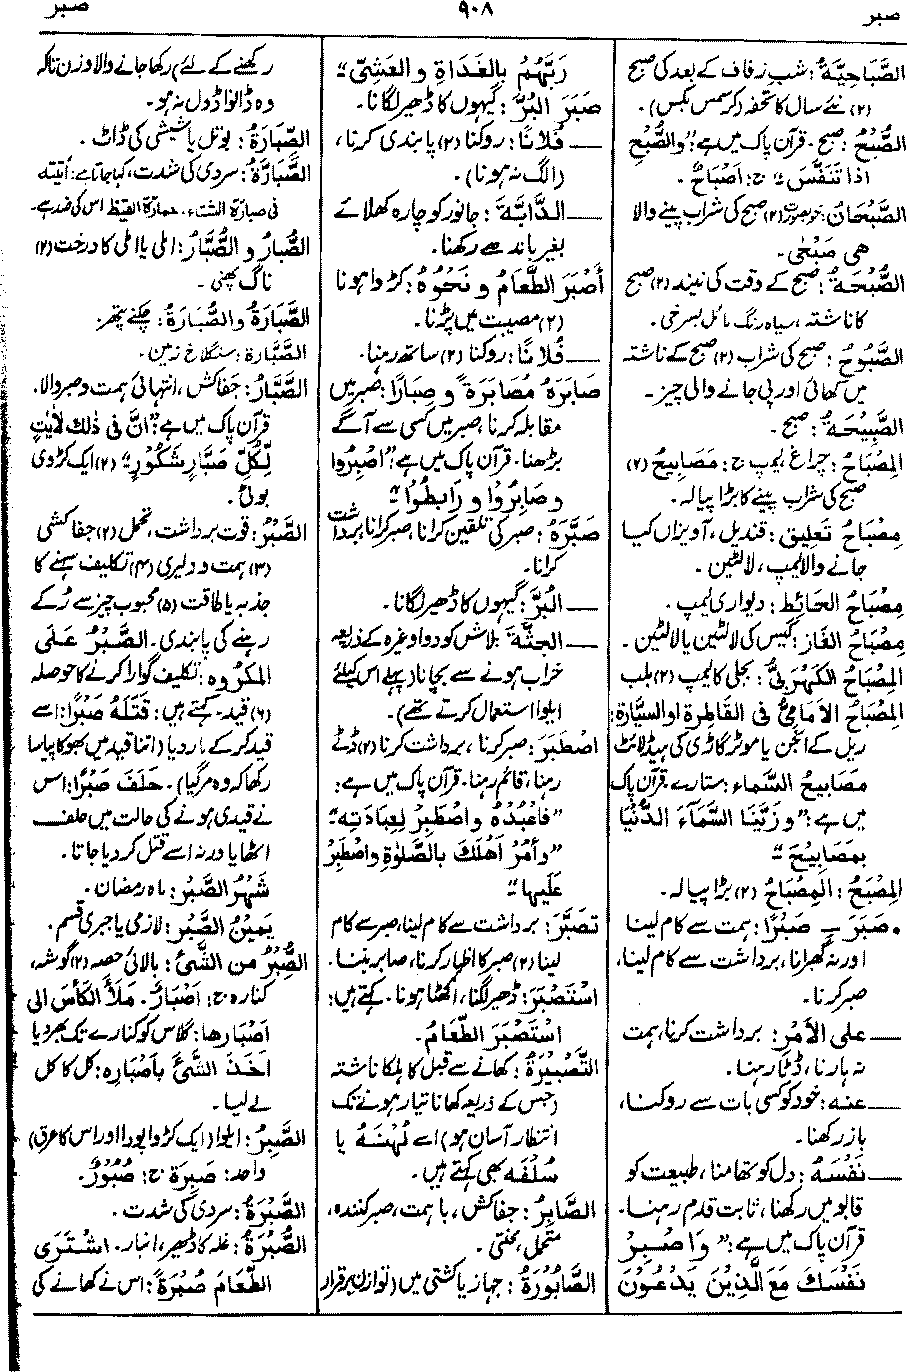 صبر
۹۰۸
صبر
الصَّبَاحِيَّةُ: شبِ زفاف کے بعد کی صبح
(۲) نئے سال کا تحفہ (کرسمس بکس)۔
الصُّبْحُ: صبح۔ قرآن پاک میں ہے: "والصُّبْحِ
اذا تَنَفَّسَ" ج: اَصْبَاحٌ۔
الصَّبْحَانُ: خوبصورت (۲) صبح کی شراب پینے والا
ھی صَبْحٰی۔
الصُّبْحَةُ: صبح کے وقت کی نیند (۲) صبح
کا ناشتہ، سیاہ رنگ مائل بسرخی۔
الصَّبُوحُ: صبح کی شراب (۲) صبح کے ناشتہ
میں کھائی اور پی جانے والی چیز۔
الصَّبِيْحَةُ: صبح۔
المِصْبَاحُ: چراغ، لیمپ ج: مَصَابِيحُ (۲)
صبح کی شراب پینے کا بڑا پیالہ۔
مِصْبَاحُ تَعلِيقٍ: قندیل، آویزاں کیا
جانے والا لیمپ، لالٹین۔
مِصْبَاحُ الحَائِطِ: دیواری لیمپ۔
مِصْبَاحُ الغَازِ: گیس کی لالٹین یا لالٹین۔
المِصْبَاحُ الكَهْرَبِيُّ: بجلی کا لیمپ (۲) بلب
المِصْبَاحُ الاَمَامِيُّ فى القَاطِرةِ او السيَّارَةِ:
ریل کے انجن یا موٹر گاڑی کی ہیڈ لائٹ
مصابيحُ السَّماءِ: ستارے۔ قرآن پاک
میں ہے: "وَزَيَّنَّا السَّمَآءَ الدُّنْيَا
بِمَصَابِيْحَ"
المِصْبَحُ: المِصْبَاحُ (۲) بڑا پیالہ۔
• صَبَرَ ـِ صَبْرًا: ہمت سے کام لینا
اور نہ گھبرانا، برداشت سے کام لینا،
صبر کرنا۔
— على الاَمْرِ: برداشت کرنا، ہمت
نہ ہارنا، ڈٹا رہنا۔
— عنه: خود کو کسی بات سے روکنا،
باز رکھنا۔
— نَفْسَهُ: دل کو تھامنا، طبیعت کو
قابو میں رکھنا، ثابت قدم رہنا۔
قرآن پاک میں ہے: "وَاصْبِرْ
نَفْسَكَ مَعَ الَّذِيْنَ يَدْعُوْنَ
رَبَّهُمْ بِالْغَدَاةِ وَالعَشِيِّ"
صَبَرَ البُرَّ: گیہوں کا ڈھیر لگانا۔
— فُلَانًا: روکنا (۲) پابندی کرنا،
(الگ نہ ہونا)۔
— الدَّابَّةَ: جانور کو چارہ کھلائے
بغیر باندھے رکھنا۔
أَصْبَرَ الطَّعَامُ و نَحْوُهُ: کڑوا ہونا
(۲) مصیبت میں پڑنا۔
— فُلَانًا: روکنا (۲) ساتھ رہنا۔
صَابَرَهُ مُصَابَرَةً و صِبَارًا: صبر میں
مقابلہ کرنا، صبر میں کسی سے آگے
بڑھنا۔ قرآن پاک میں ہے: "اصْبِرُوا
وصَابِرُوا ورَابِطُوا"
صَبَّرَهُ: صبر کی تلقین کرنا، صبر کرانا، برداشت
کرانا۔
— البُرَّ: گیہوں کا ڈھیر لگانا۔
— الجثَّةَ: لاش کو دوا وغیرہ کے ذریعہ
خراب ہونے سے بچانا (پہلے اس کیلئے
ایلوا استعمال کرتے تھے)۔
اصْطَبَرَ: صبر کرنا، برداشت کرنا (۲) ڈٹے
رہنا، قائم رہنا۔ قرآن پاک میں ہے:
"فَاعْبُدْهُ واصْطَبِرْ لِعِبَادَتِهِ"
"وأمُرْ اَهْلَكَ بِالصَّلٰوةِ واصْطَبِرْ
عَلَيها"
تَصَبَّرَ: برداشت سے کام لینا، صبر سے کام
لینا (۲) صبر کا اظہار کرنا، صابر بننا۔
اسْتَصْبَرَ: ڈھیر لگنا، اکٹھا ہونا۔ کہتے ہیں:
اسْتَصْبَرَ الطَّعَامُ۔
التَّصْبِيْرَةُ: کھانے سے قبل کا ہلکا ناشتہ
(جس کے ذریعہ کھانا تیار ہونے تک
انتظار آسان ہو) اسے لُهْنَةٌ یا
سُلْفَه بھی کہتے ہیں۔
الصَّابِرُ: جفاکش، با ہمت، صبر کنندہ،
متحمل، محنتی۔
الصَّابُورَةُ: جہاز یا کشتی میں (توازن برقرار
رکھنے کے لئے) رکھا جانے والا وزن تاکہ
وہ ڈانواڈول نہ ہو۔
الصِّبَارَةُ: بوتل یا شیشی کی ڈاٹ۔
الصَّبَارَّةُ: سردی کی شدت، کہا جاتا ہے: أتيتُه
فى صبارّة الشتاء۔ حمارّة القيظ اس کی ضد ہے۔
الصُّبَارُ و الصُّبَّارُ: املی یا املی کا درخت (۲)
ناگ پھنی۔
الصَّبَارَةُ والصُّبَارَةُ: چکنے پتھر۔
الصَّبَّارة: سنگلاخ زمین۔
الصَّبَّارُ: جفاکش، انتہائی ہمت و صبر والا۔
قرآن پاک میں ہے: "اِنَّ فِى ذٰلِكَ لَاٰيٰتٍ
لِّكُلِّ صَبَّارٍ شَكُوْرٍ" (۲) ایک کڑوی
بوٹی۔
الصَّبْرُ: قوتِ برداشت، تحمل (۲) جفاکشی
(۳) ہمت و دلیری (۴) تکلیف سہنے کا
جذبہ یا طاقت (۵) محبوب چیز سے رُکے
رہنے کی پابندی۔ الصَّبْرُ عَلَى
المَكْرُوهِ: تکلیف گوارا کرنے کا حوصلہ
(۶) قید۔ کہتے ہیں: قَتَلَهُ صَبْرًا: اسے
قید کر کے مار دیا (اتنا قید میں بھوکا پیاسا
رکھا کہ وہ مر گیا)۔ حَلَفَ صَبْرًا: اس
نے قیدی ہونے کی حالت میں حلف
اٹھایا ورنہ اسے قتل کر دیا جاتا۔
شَهْرُ الصَّبْرِ: ماہ رمضان۔
يَمِيْنُ الصَّبْرِ: لازمی یا جبری قسم۔
الصُّبْرُ من الشَّيْءِ: بالائی حصہ (۲) گوشہ،
کنارہ ج: اَصْبَارٌ۔ مَلَأَ الكَأْسَ الى
اَصْبَارِها: گلاس کو کنارے تک بھر دیا
اَخَذَ الشَّيْءَ بِأَصْبَارِه: کل کا کل
لے لیا۔
الصَّبِرُ: ایلوا (ایک کڑوا پودا اور اس کا عرق)
واحد: صَبِرَة ج: صُبُوْرٌ۔
الصَّبْرَةُ: سردی کی شدت۔
الصُّبْرَةُ: غلہ کا ڈھیر، انبار۔ اشْتَرَى
الطَّعَامَ صُبْرَةً: اس نے کھانے کی